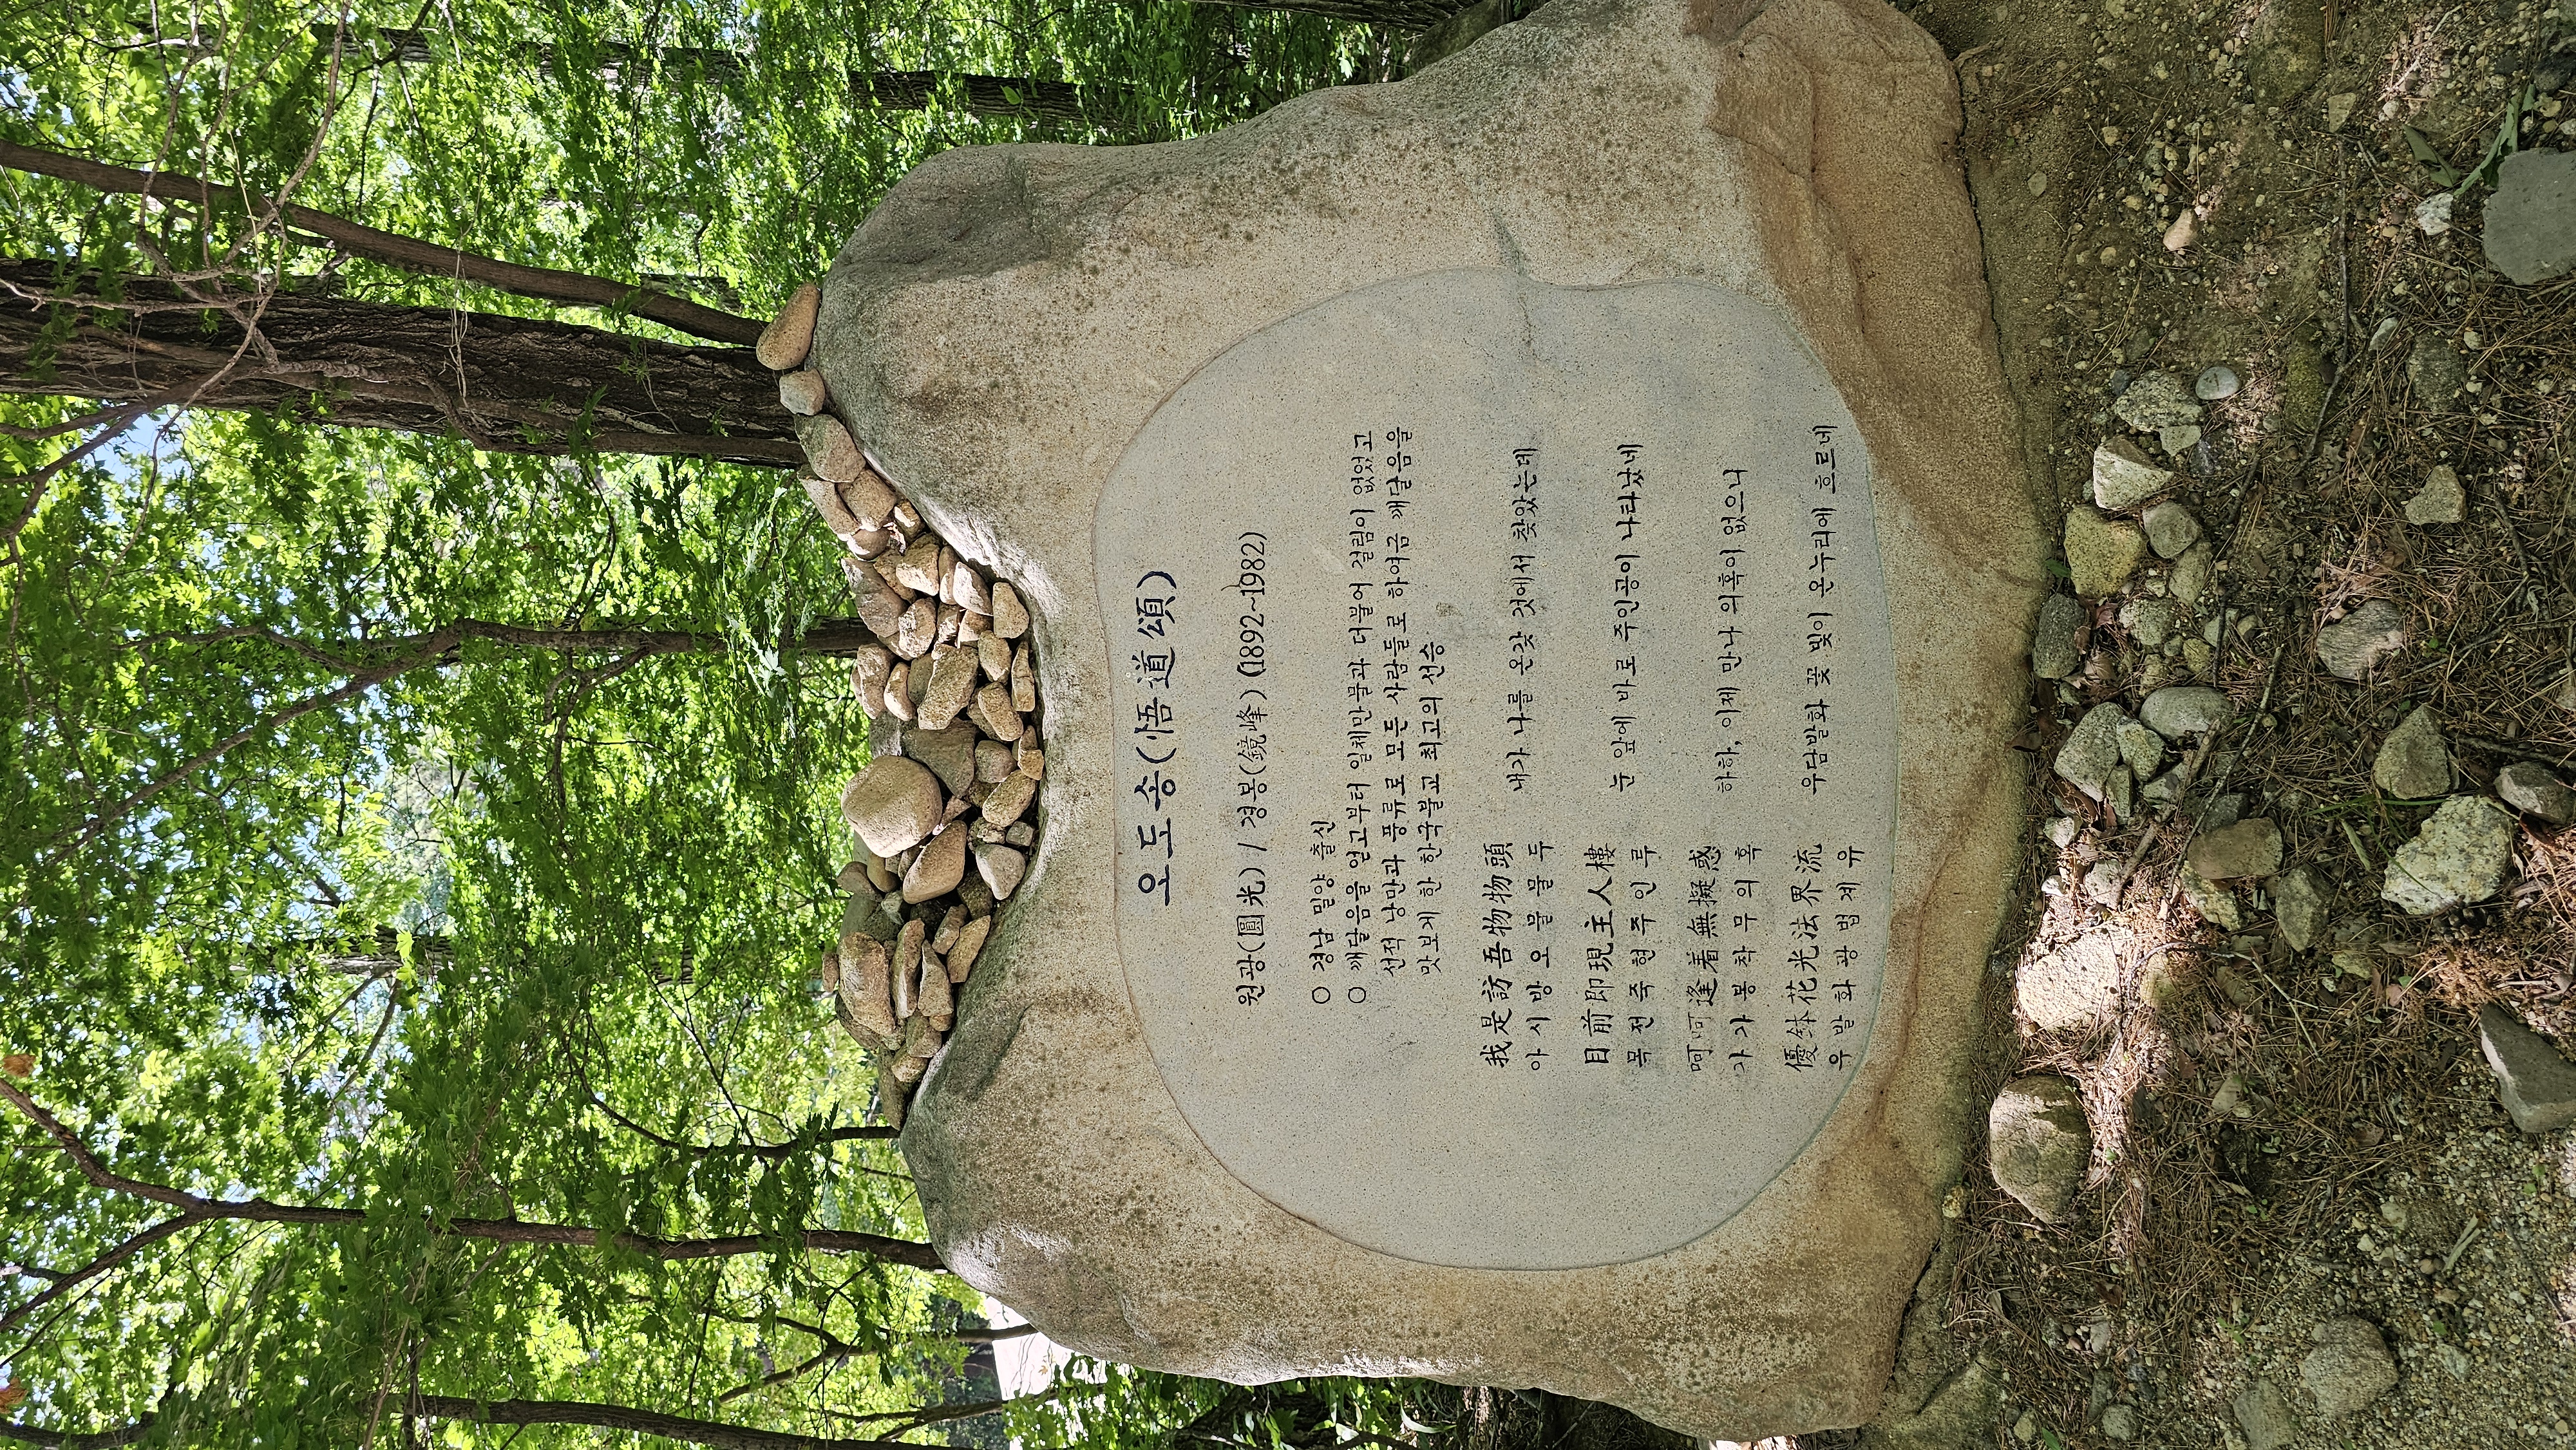 오도송(悟道頌)
원광(圓光) / 경봉(鏡峰) (1892~1982)
○ 경남 밀양 출신
○ 깨달음을 얻고부터 일체만물과 더불어 걸림이 없었고
선적 낭만과 풍류로 모든 사람들로 하여금 깨달음을
맛보게 한 한국불교 최고의 선승
我是訪吾物物頭 내가 나를 온갖 것에서 찾았는데
아시방오물물두
目前即現主人樓 눈 앞에 바로 주인공이 나타났네
목전즉현주인루
呵呵逢着無擬惑 하하, 이제 만나 의혹이 없으니
가가봉착무의혹
優鉢花光法界流 우담발화 꽃 빛이 온누리에 흐르네
우발화광법계유